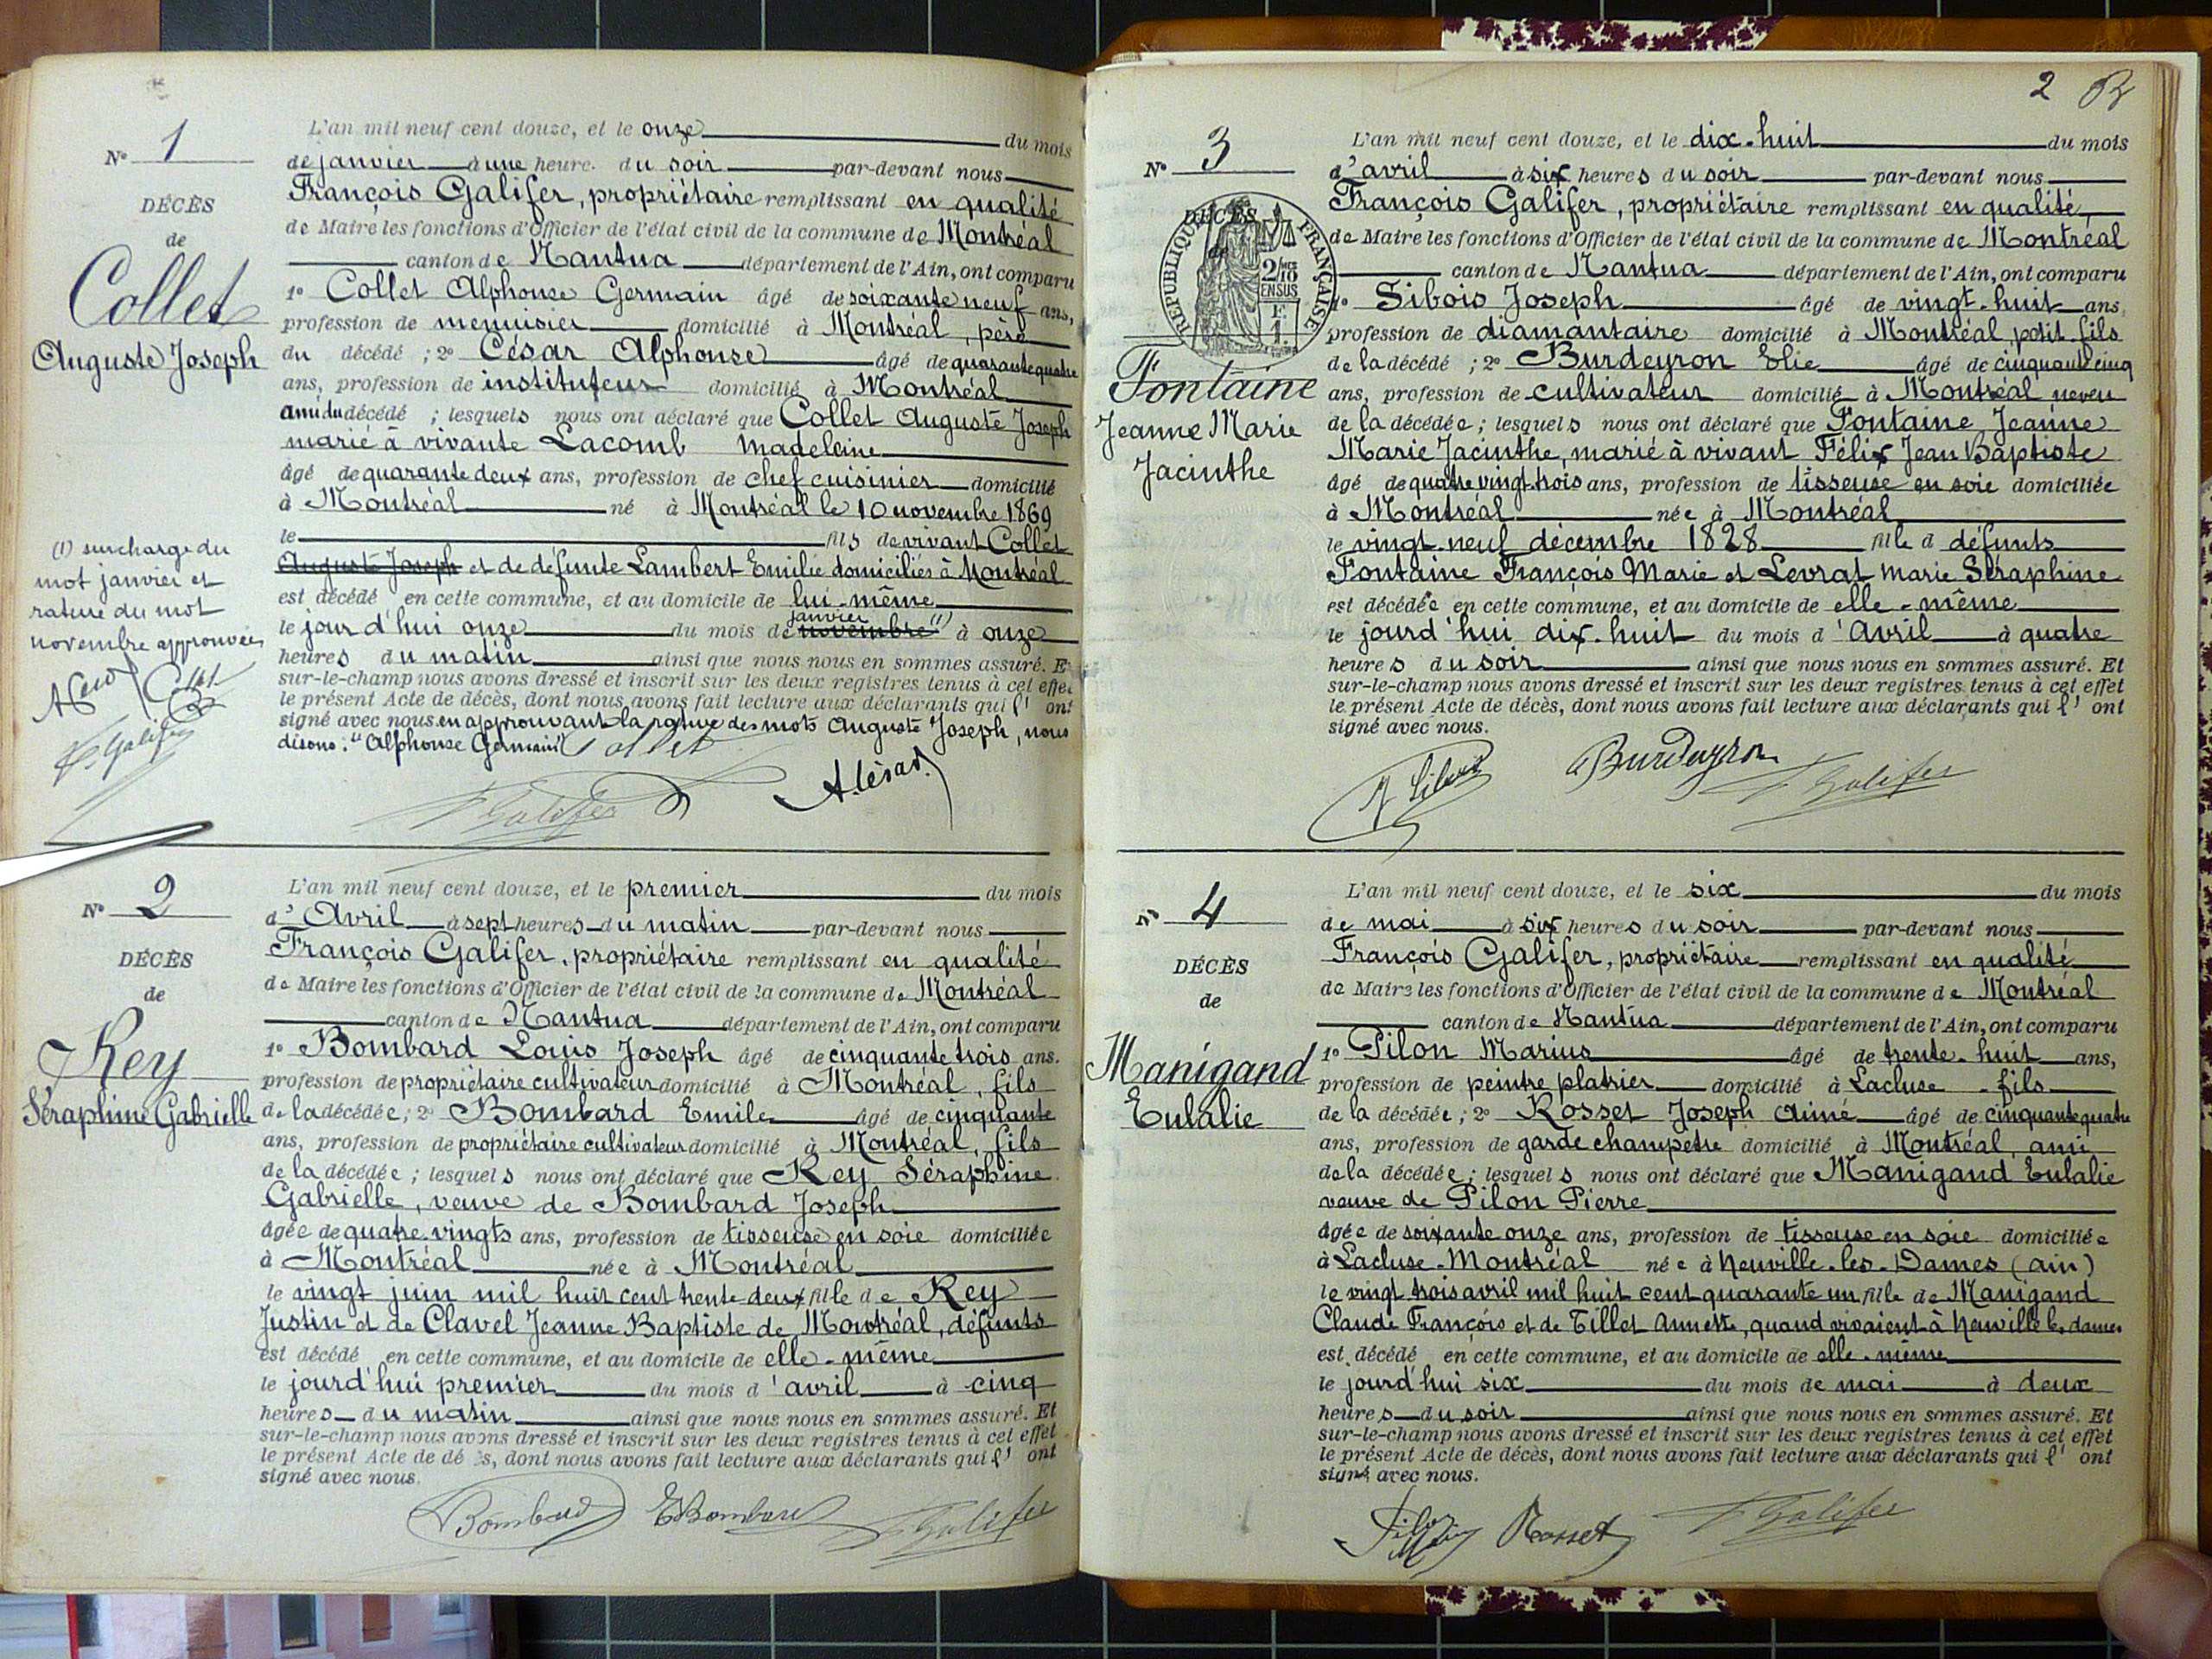 N° 1
DÉCÈS
de
Collet
Auguste Joseph
(1) surcharge du
mot janvier et
rature du mot
novembre approuvées
L'an mil neuf cent douze, et le onze du mois
de janvier à une heure du soir par-devant nous
François Galifer, propriétaire remplissant en qualité
de Maire les fonctions d'Officier de l'état civil de la commune de Montréal
canton de Nantua département de l'Ain, ont comparu
1° Collet Alphonse Germain âgé de soixante neuf ans,
profession de menuisier domicilié à Montréal, père
du décédé ; 2° César Alphonse âgé de quarante quatre
ans, profession de instituteur domicilié à Montréal
ami du décédé ; lesquels nous ont déclaré que Collet Auguste Joseph
marié à vivante Lacomb Madeleine
âgé de quarante deux ans, profession de chef cuisinier domicilié
à Montréal né à Montréal le 10 novembre 1869
le fils de vivant Collet
Auguste Joseph et de défunte Lambert Emilie domiciliés à Montréal
est décédé en cette commune, et au domicile de lui-même
janvier
le jour d'hui onze du mois de novembre (1) à onze
heures du matin ainsi que nous nous en sommes assuré. Et
sur-le-champ nous avons dressé et inscrit sur les deux registres tenus à cet effet
le présent Acte de décès, dont nous avons fait lecture aux déclarants qui l' ont
signé avec nous. en approuvant la rature des mots Auguste Joseph, nous
disons : "Alphonse Germain"
Collet
F Galifer
A. César
N° 2
DÉCÈS
de
Rey
Séraphine Gabrielle
L'an mil neuf cent douze, et le premier du mois
d' Avril à sept heures du matin par-devant nous
François Galifer, propriétaire remplissant en qualité
de Maire les fonctions d'Officier de l'état civil de la commune de Montréal
canton de Nantua département de l'Ain, ont comparu
1° Bombard Louis Joseph âgé de cinquante trois ans.
profession de propriétaire cultivateur domicilié à Montréal, fils
de la décédée ; 2° Bombard Emile âgé de cinquante
ans, profession de propriétaire cultivateur domicilié à Montréal, fils
de la décédée ; lesquels nous ont déclaré que Rey Séraphine
Gabrielle, veuve de Bombard Joseph
âgée de quatre-vingts ans, profession de tisseuse en soie domiciliée
à Montréal née à Montréal
le vingt juin mil huit cent trente deux fille de Rey
Justin et de Clavel Jeanne Baptiste de Montréal, défunts
est décédé en cette commune, et au domicile de elle-même
le jourd'hui premier du mois d' avril à cinq
heures du matin ainsi que nous nous en sommes assuré. Et
sur-le-champ nous avons dressé et inscrit sur les deux registres tenus à cet effet
le présent Acte de dé ès, dont nous avons fait lecture aux déclarants qui l' ont
signé avec nous.
Bombard E Bombard F Galifer
2
N° 3
DÉCÈS
de
RÉPUBLIQUE FRANÇAISE
2/10 EN SUS
Fontaine
Jeanne Marie
Jacinthe
L'an mil neuf cent douze, et le dix-huit du mois
d'avril à six heures du soir par-devant nous
François Galifer, propriétaire remplissant en qualité
de Maire les fonctions d'Officier de l'état civil de la commune de Montréal
canton de Nantua département de l'Ain, ont comparu
1° Sibois Joseph âgé de vingt-huit ans
profession de diamantaire domicilié à Montréal, petit fils
de la décédé ; 2° Burdeyron Elie âgé de cinquante cinq
ans, profession de cultivateur domicilié à Montréal neveu
de la décédée ; lesquels nous ont déclaré que Fontaine Jeanne
Marie Jacinthe, marié à vivant Félix Jean Baptiste
âgé de quatre vingt trois ans, profession de tisseuse en soie domiciliée
à Montréal née à Montréal
le vingt-neuf décembre 1828 fille d défunts
Fontaine François Marie et Levrat Marie Séraphine
est décédée en cette commune, et au domicile de elle-même
le jourd'hui dix-huit du mois d' Avril à quatre
heures du soir ainsi que nous nous en sommes assuré. Et
sur-le-champ nous avons dressé et inscrit sur les deux registres tenus à cet effet
le présent Acte de décès, dont nous avons fait lecture aux déclarants qui l' ont
signé avec nous.
Burdeyron F Galifer
N° 4
DÉCÈS
de
Manigand
Eulalie
L'an mil neuf cent douze, et le six du mois
de mai à six heures du soir par-devant nous
François Galifer, propriétaire remplissant en qualité
de Maire les fonctions d'Officier de l'état civil de la commune de Montréal
canton de Nantua département de l'Ain, ont comparu
1° Pilon Marius âgé de trente-huit ans,
profession de peintre platrier domicilié à Lacluse - fils
de la décédée ; 2° Rosset Joseph Aimé âgé de cinquante quatre
ans, profession de garde champetre domicilié à Montréal, ami
de la décédée ; lesquels nous ont déclaré que Manigand Eulalie
veuve de Pilon Pierre
âgée de soixante onze ans, profession de tisseuse en soie domiciliée
à Lacluse-Montréal née à Neuville-les-Dames (ain)
le vingt trois avril mil huit cent quarante un fille de Manigand
Claude François et de Tillet Annette, quand vivaient à Neuville les dames
est décédé en cette commune, et au domicile de elle-même
le jourd'hui six du mois de mai à deux
heures du soir ainsi que nous nous en sommes assuré. Et
sur-le-champ nous avons dressé et inscrit sur les deux registres tenus à cet effet
le présent Acte de décès, dont nous avons fait lecture aux déclarants qui l' ont
signé avec nous.
Rosset F Galifer